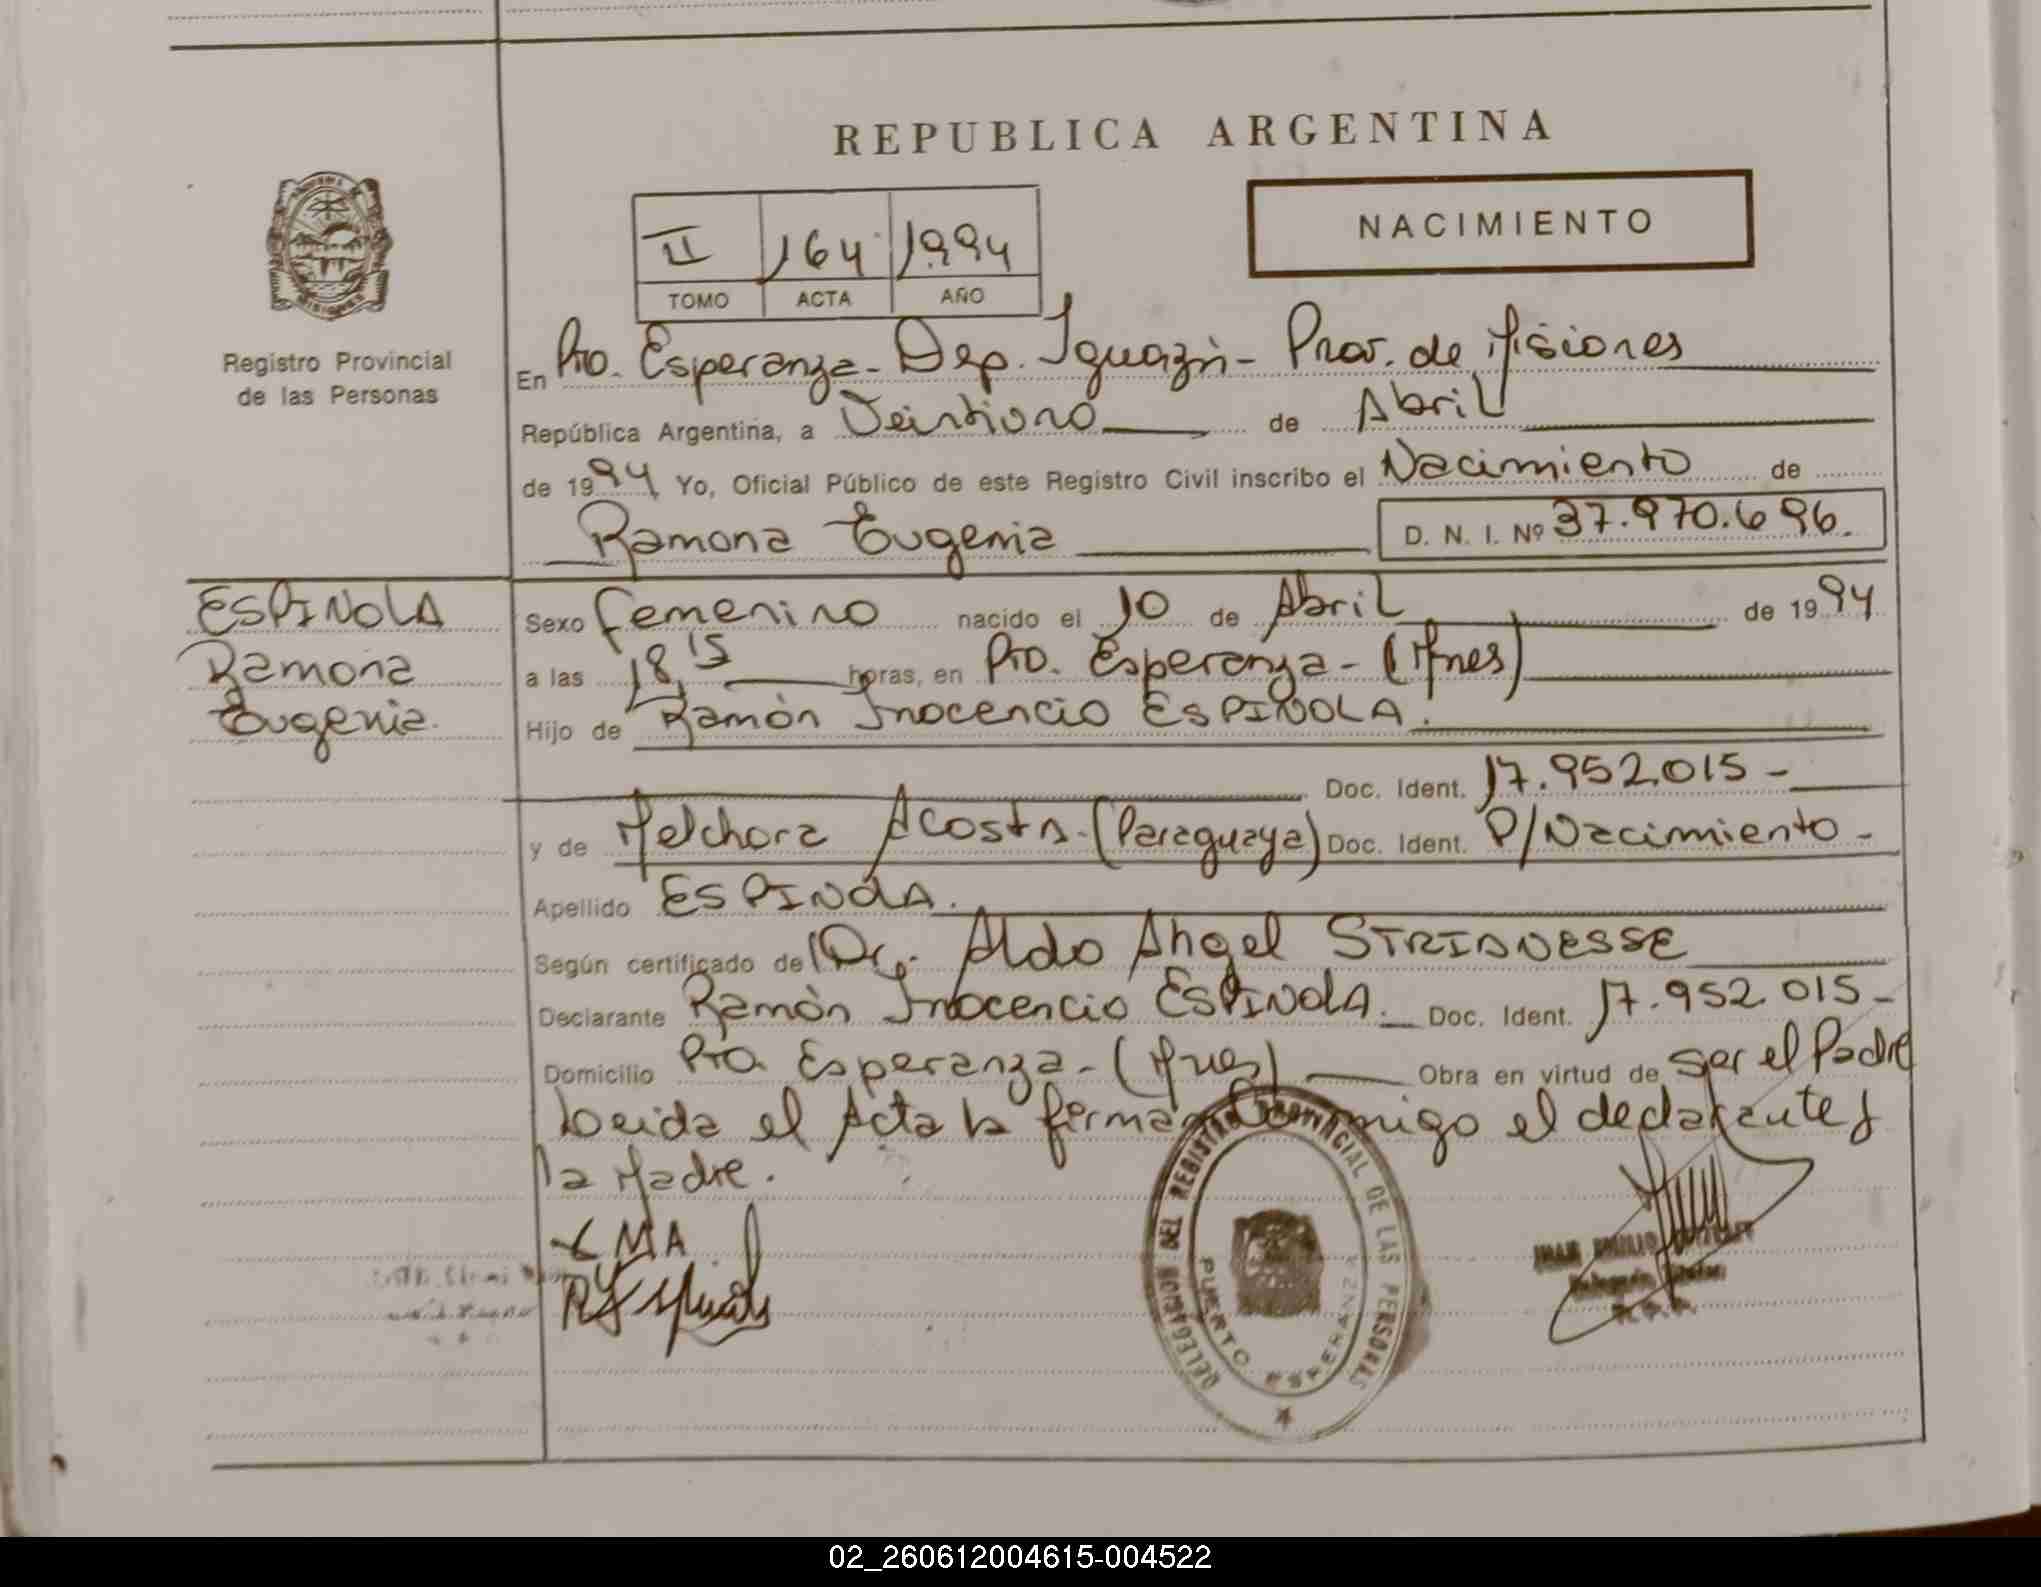 REPUBLICA ARGENTINA
NACIMIENTO
II 164 1994
TOMO ACTA AÑO
Registro Provincial
de las Personas
En Pto. Esperanza - Dep. Iguazú - Prov. de Misiones
República Argentina, a Veintiuno de Abril
de 1994 Yo, Oficial Público de este Registro Civil inscribo el Nacimiento de
Ramona Eugenia D. N. I. Nº 37.970.696.
ESPINOLA
Ramona
Eugenia.
Sexo femenino nacido el 10 de Abril de 1994
a las 18,15 horas, en Pto. Esperanza - (Mnes)
Hijo de Ramón Inocencio ESPINOLA.
Doc. Ident. 17.952.015 -
y de Melchora Acosta - (Paraguaya) Doc. Ident. P/Nacimiento -
Apellido ESPINOLA.
Según certificado del Dr. Aldo Angel
Declarante Ramón Inocencio ESPINOLA. Doc. Ident. 17.952.015 -
Domicilio Pto. Esperanza - (Mnes) Obra en virtud de ser el Padre
Leida el Acta la firman conmigo el declarante y
la Madre.
MA
DELEGACION DEL REGISTRO PROVINCIAL DE LAS PERSONAS
PUERTO ESPERANZA
JUAN EMILIO
02_260612004615-004522